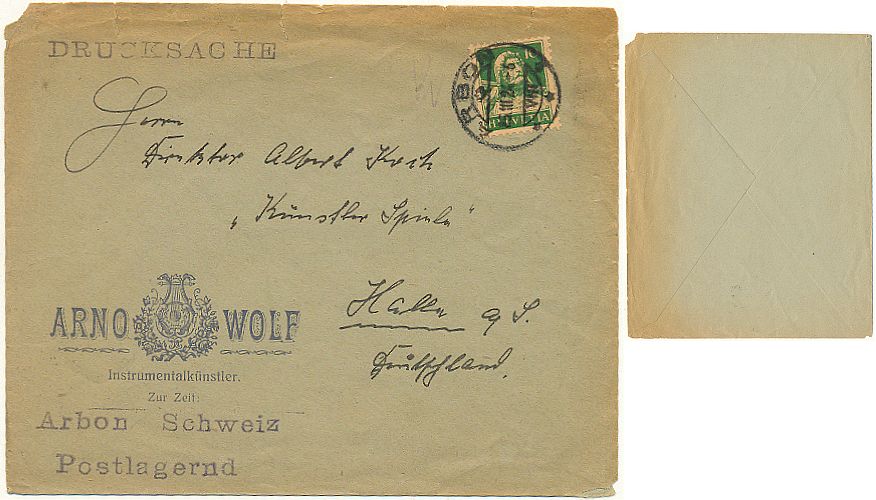 DRUCKSACHE
10
HELVETIA
ARBON
Herrn
Direktor Albert Koch
„Künstler Spiele"
Halle a/S.
Deutschland.
ARNO WOLF
Instrumentalkünstler.
Zur Zeit:
Arbon Schweiz
Postlagernd